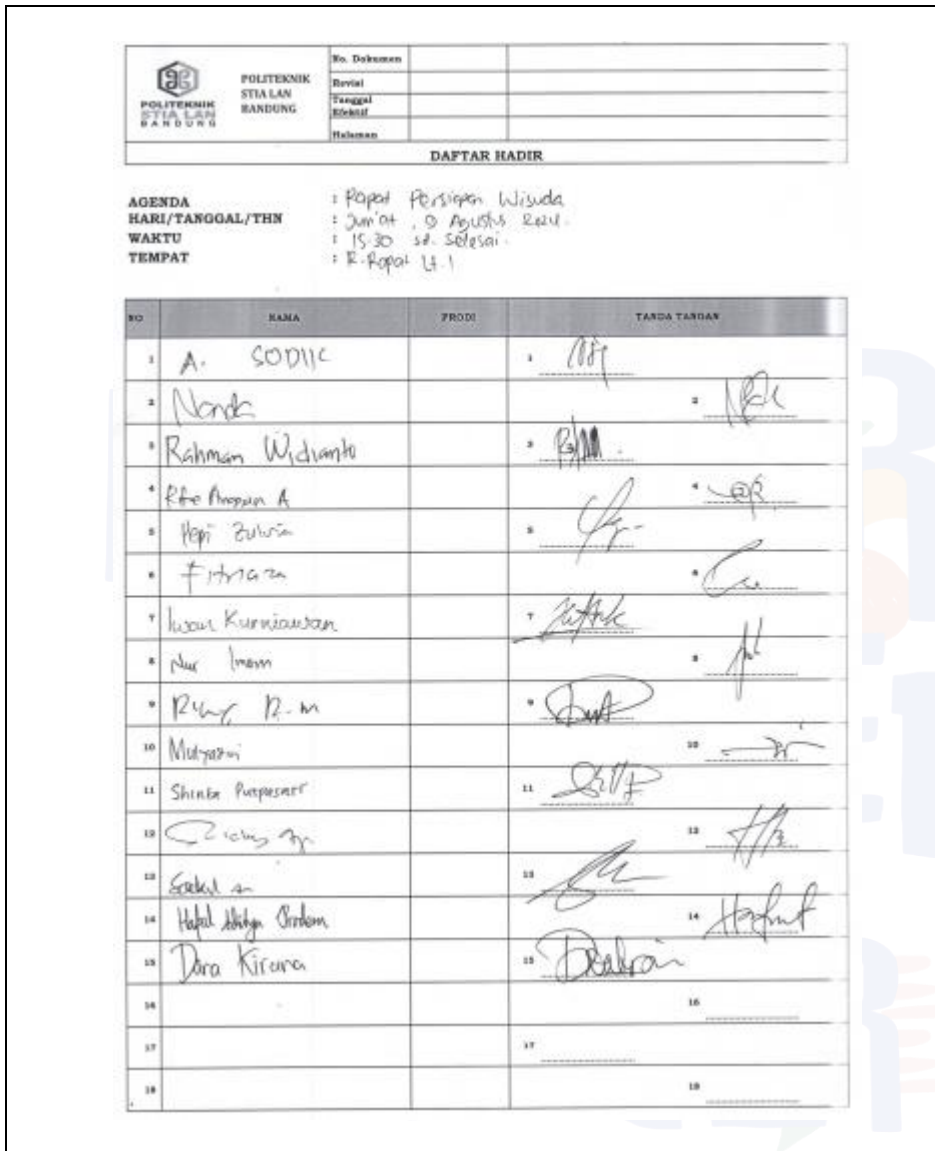 POLITEKNIK
STIA LAN
BANDUNG
POLITEKNIK
STIA LAN
BANDUNG
No. Dokumen
Revisi
Tanggal
Efektif
Halaman
DAFTAR HADIR
AGENDA : Rapat Persiapan Wisuda
HARI/TANGGAL/THN : Jum'at, 9 Agustus 2024.
WAKTU : 15.30 sd. Selesai.
TEMPAT : R. Rapat Lt. 1
NO NAMA PRODI TANDA TANGAN
1 A. SODIK 1
2 Nanda 2
3 Rahman Widianto 3
4 A 4
5 Hepi 5
6 Fitriaza 6
7 Iwan Kurniawan 7
8 Nur Imam 8
9 9
10 Mulyazri 10
11 Shinta Puspasari 11
12 12
13 13
14 14
15 Dara Kirana 15
16 16
17 17
18 18